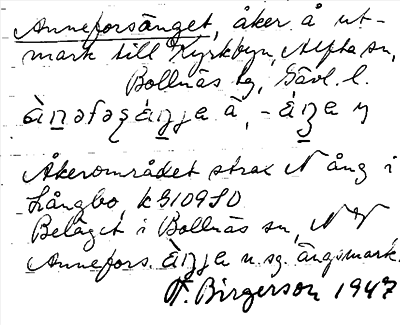 Anneforsänget, åker å ut-
mark till Kyrkbyn, Alfta sn,
Bollnäs tg, Gävl. l.
Åkerområdet strax N ång i
Långbo, k 3109 SO
Beläget i Bollnäs sn, NV
Annefors. n. sg. ängsmark.
F. Birgerson 1947